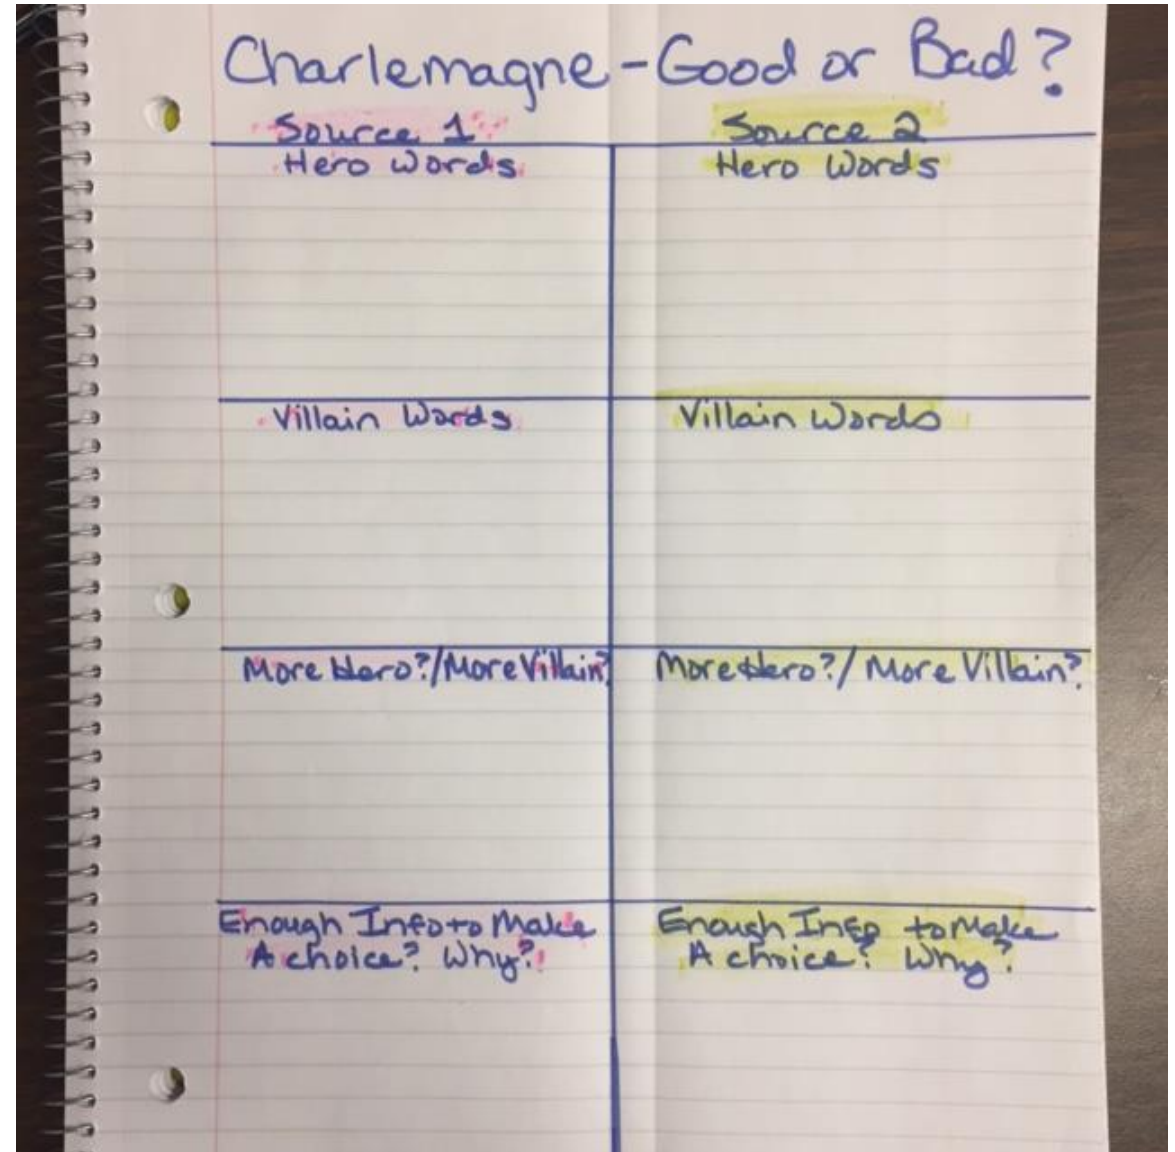 Charlemagne - Good or Bad?
Source 1 Source 2
Hero Words Hero Words
Villain Words Villain Words
More Hero?/More Villain? More Hero?/ More Villain?
Enough Info to Make Enough Info to Make
A choice? Why? A choice? Why?